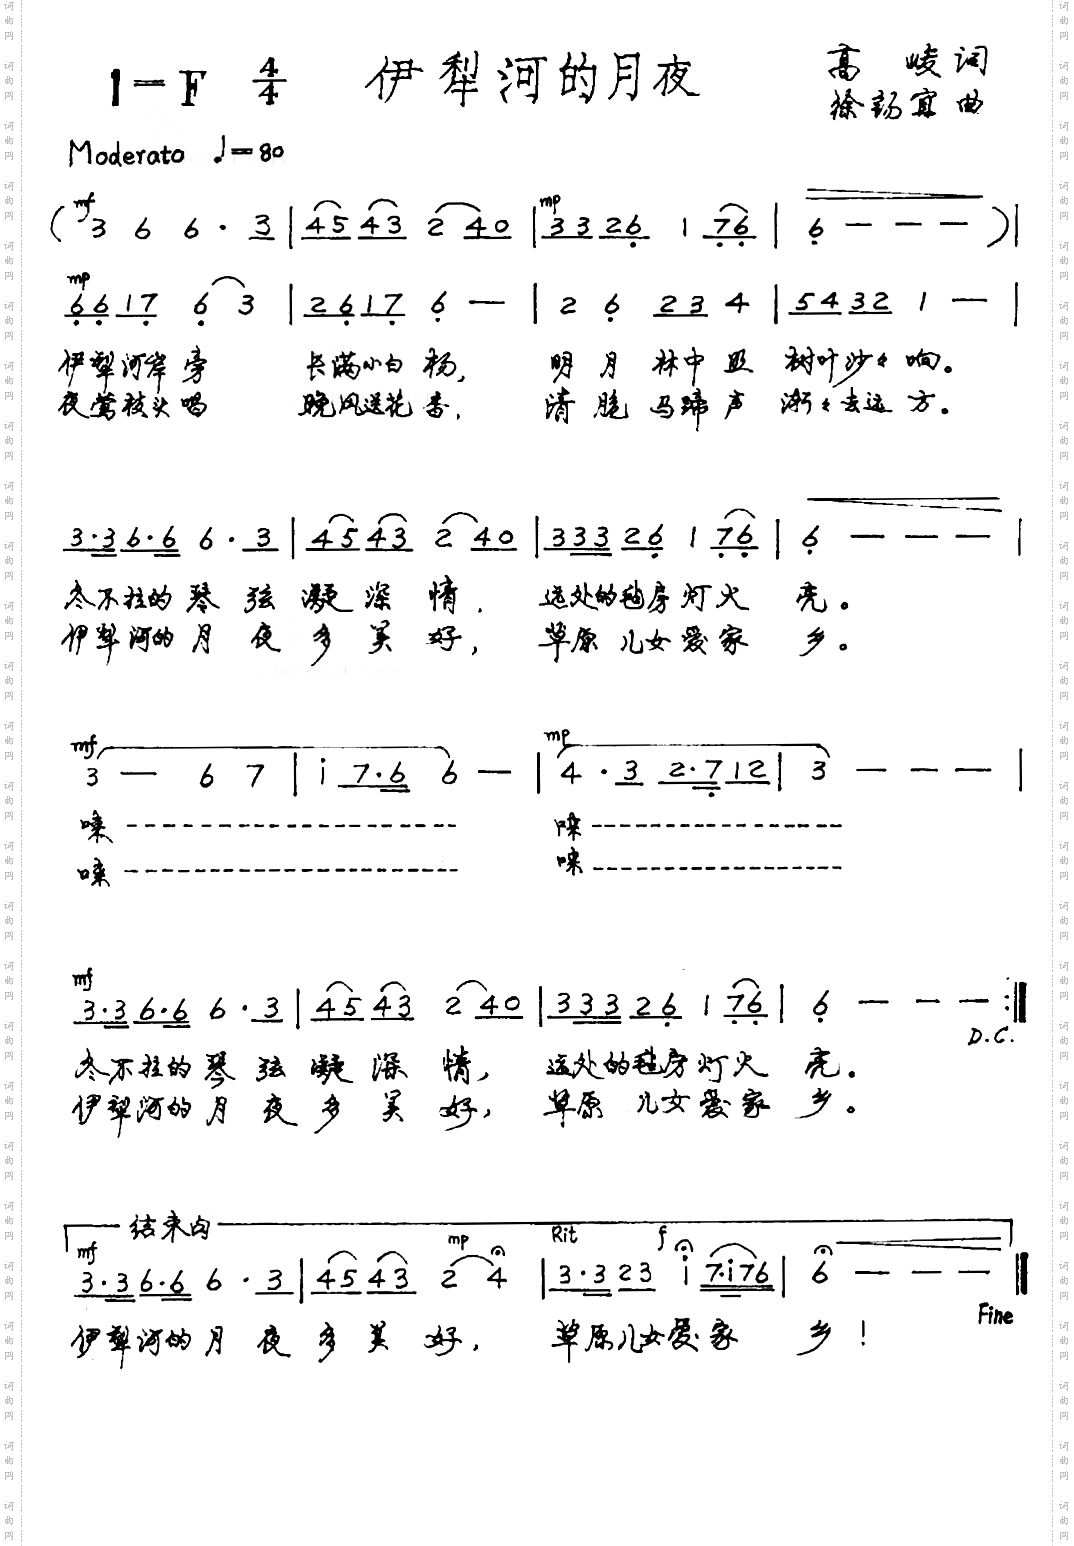 1=F 4/4 伊犁河的月夜 高峻词
徐锡宜曲
Moderato ♩=80
mf mp
( 3 6 6 · 3 | 45 43 2 40 | 33 26 1 76 | 6 — — — ) |
mp
66 17 6 3 | 26 17 6 — | 2 6 23 4 | 54 32 1 — |
伊犁河岸旁 长满小白杨, 明月林中照 树叶沙々响。
夜莺枝头唱 晚风送花香, 清脆马蹄声 渐々去远方。
3·3 6·6 6 · 3 | 45 43 2 40 | 333 26 1 76 | 6 — — — |
冬不拉的琴弦凝深情, 远处的毡房灯火亮。
伊犁河的月夜多美好, 草原儿女爱家乡。
mf mp
3 — 6 7 | i 7·6 6 — | 4 · 3 2·7 12 | 3 — — — |
嗦 ------------------- 嗦 ----------------
嗦 ------------------- 咪 ----------------
mf
3·3 6·6 6 · 3 | 45 43 2 40 | 333 26 1 76 | 6 — — — :‖
D.C.
冬不拉的琴弦凝深情, 远处的毡房灯火亮。
伊犁河的月夜多美好, 草原儿女爱家乡。
结束句
mf mp Rit f
3·3 6·6 6 · 3 | 45 43 2 4 | 3·3 23 i 7·i76 | 6 — — — ‖
Fine
伊犁河的月夜多美好, 草原儿女爱家乡!
词曲网